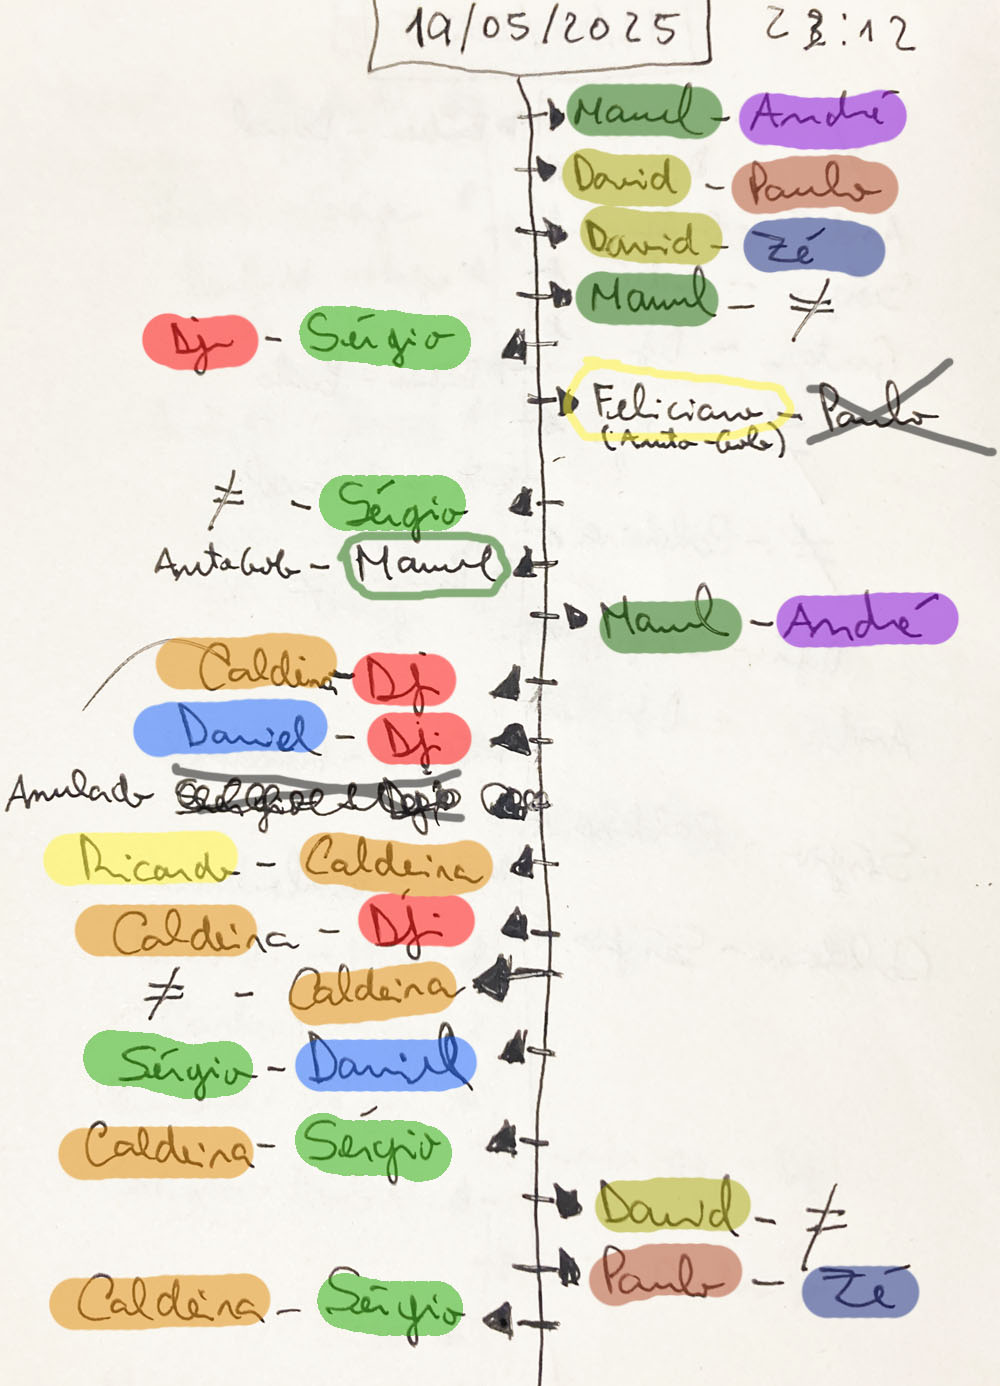 19/05/2025 23:12
Manuel - André
David - Paulo
David - Zé
Manuel - ≠
Dj - Sérgio
Feliciano - Paulo
(Auto-Golo)
≠ - Sérgio
AutoGolo - Manuel
Manuel - André
Caldeira - Dj
Daniel - Dj
Anulado
Ricardo - Caldeira
Caldeira - Dj
≠ - Caldeira
Sérgio - Daniel
Caldeira - Sérgio
David - ≠
Paulo - Zé
Caldeira - Sérgio